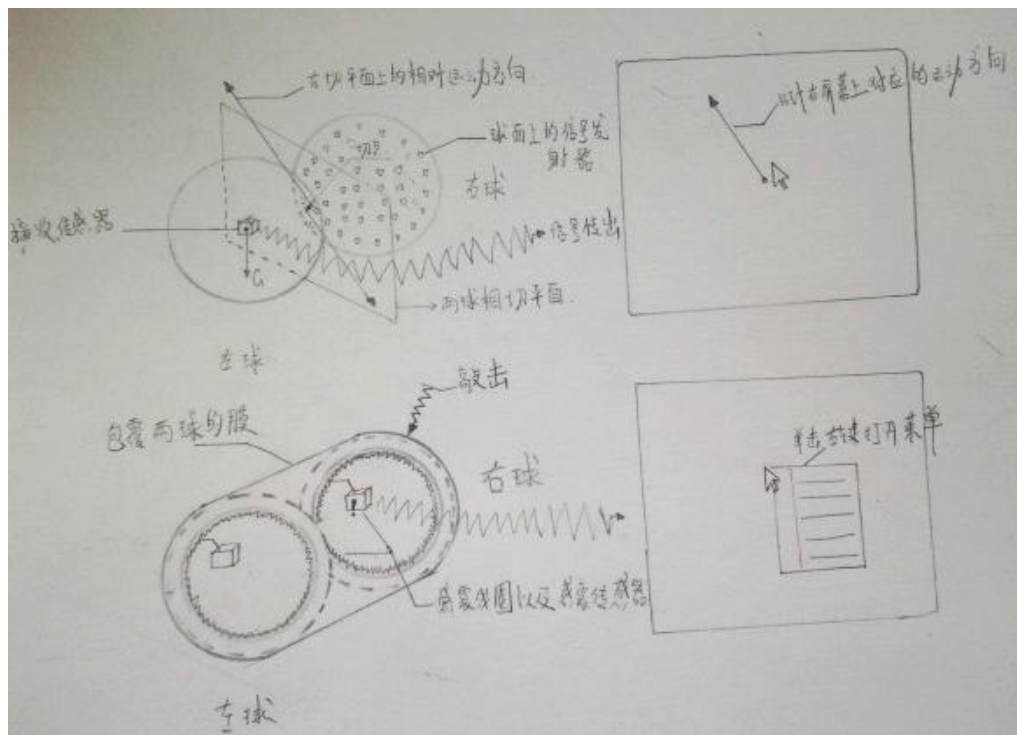 在切平面上的相对运动方向
切点
球面上的信号发
射器
右球
接收传感器
信号传出
G
两球相切平面
左球
光标在屏幕上对应的运动方向
敲击
包覆两球的膜
右球
感震线圈以及感震传感器
左球
单击右键打开菜单